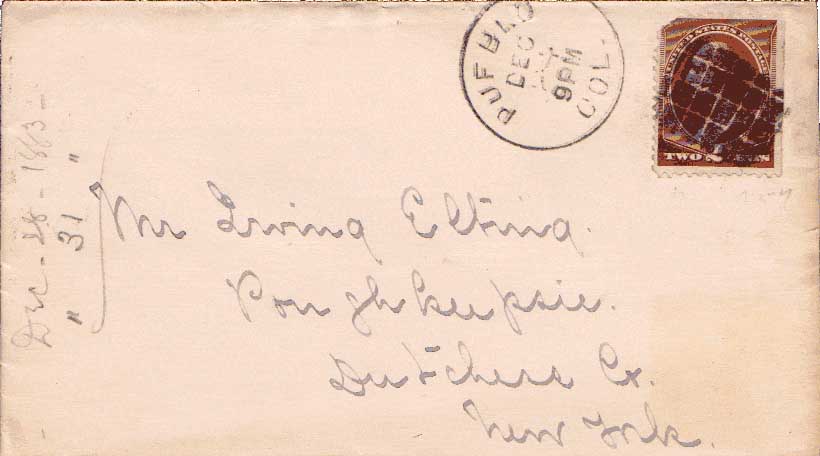 PUEBLO
COL.
DEC
9PM
UNITED STATES POSTAGE
TWO 2 CENTS
Mr Irving Elting.
Poughkeepsie.
Dutchess Co.
New York.
Dec - 28 - 1883 -
" 31 "